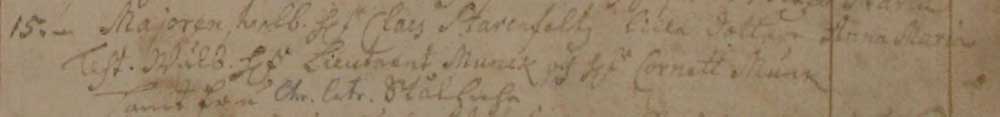 15. – Majoren, wälb. H:r Claes Starenfeltz lilla dotter Anna Maria
Test. Wälb. H:r Lieutnant Munck och H:r Cornett Munck
samt fru Chr. Catr.